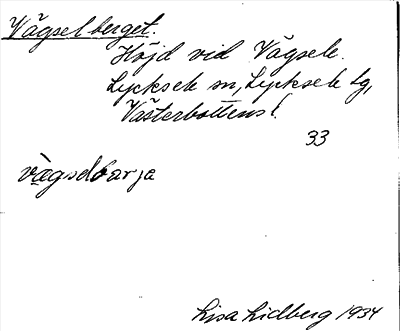 Vägselberget.
Höjd vid Vägsele.
Lycksele sn, Lycksele lg,
Västerbottens l.
33
Lisa Lidberg 1934